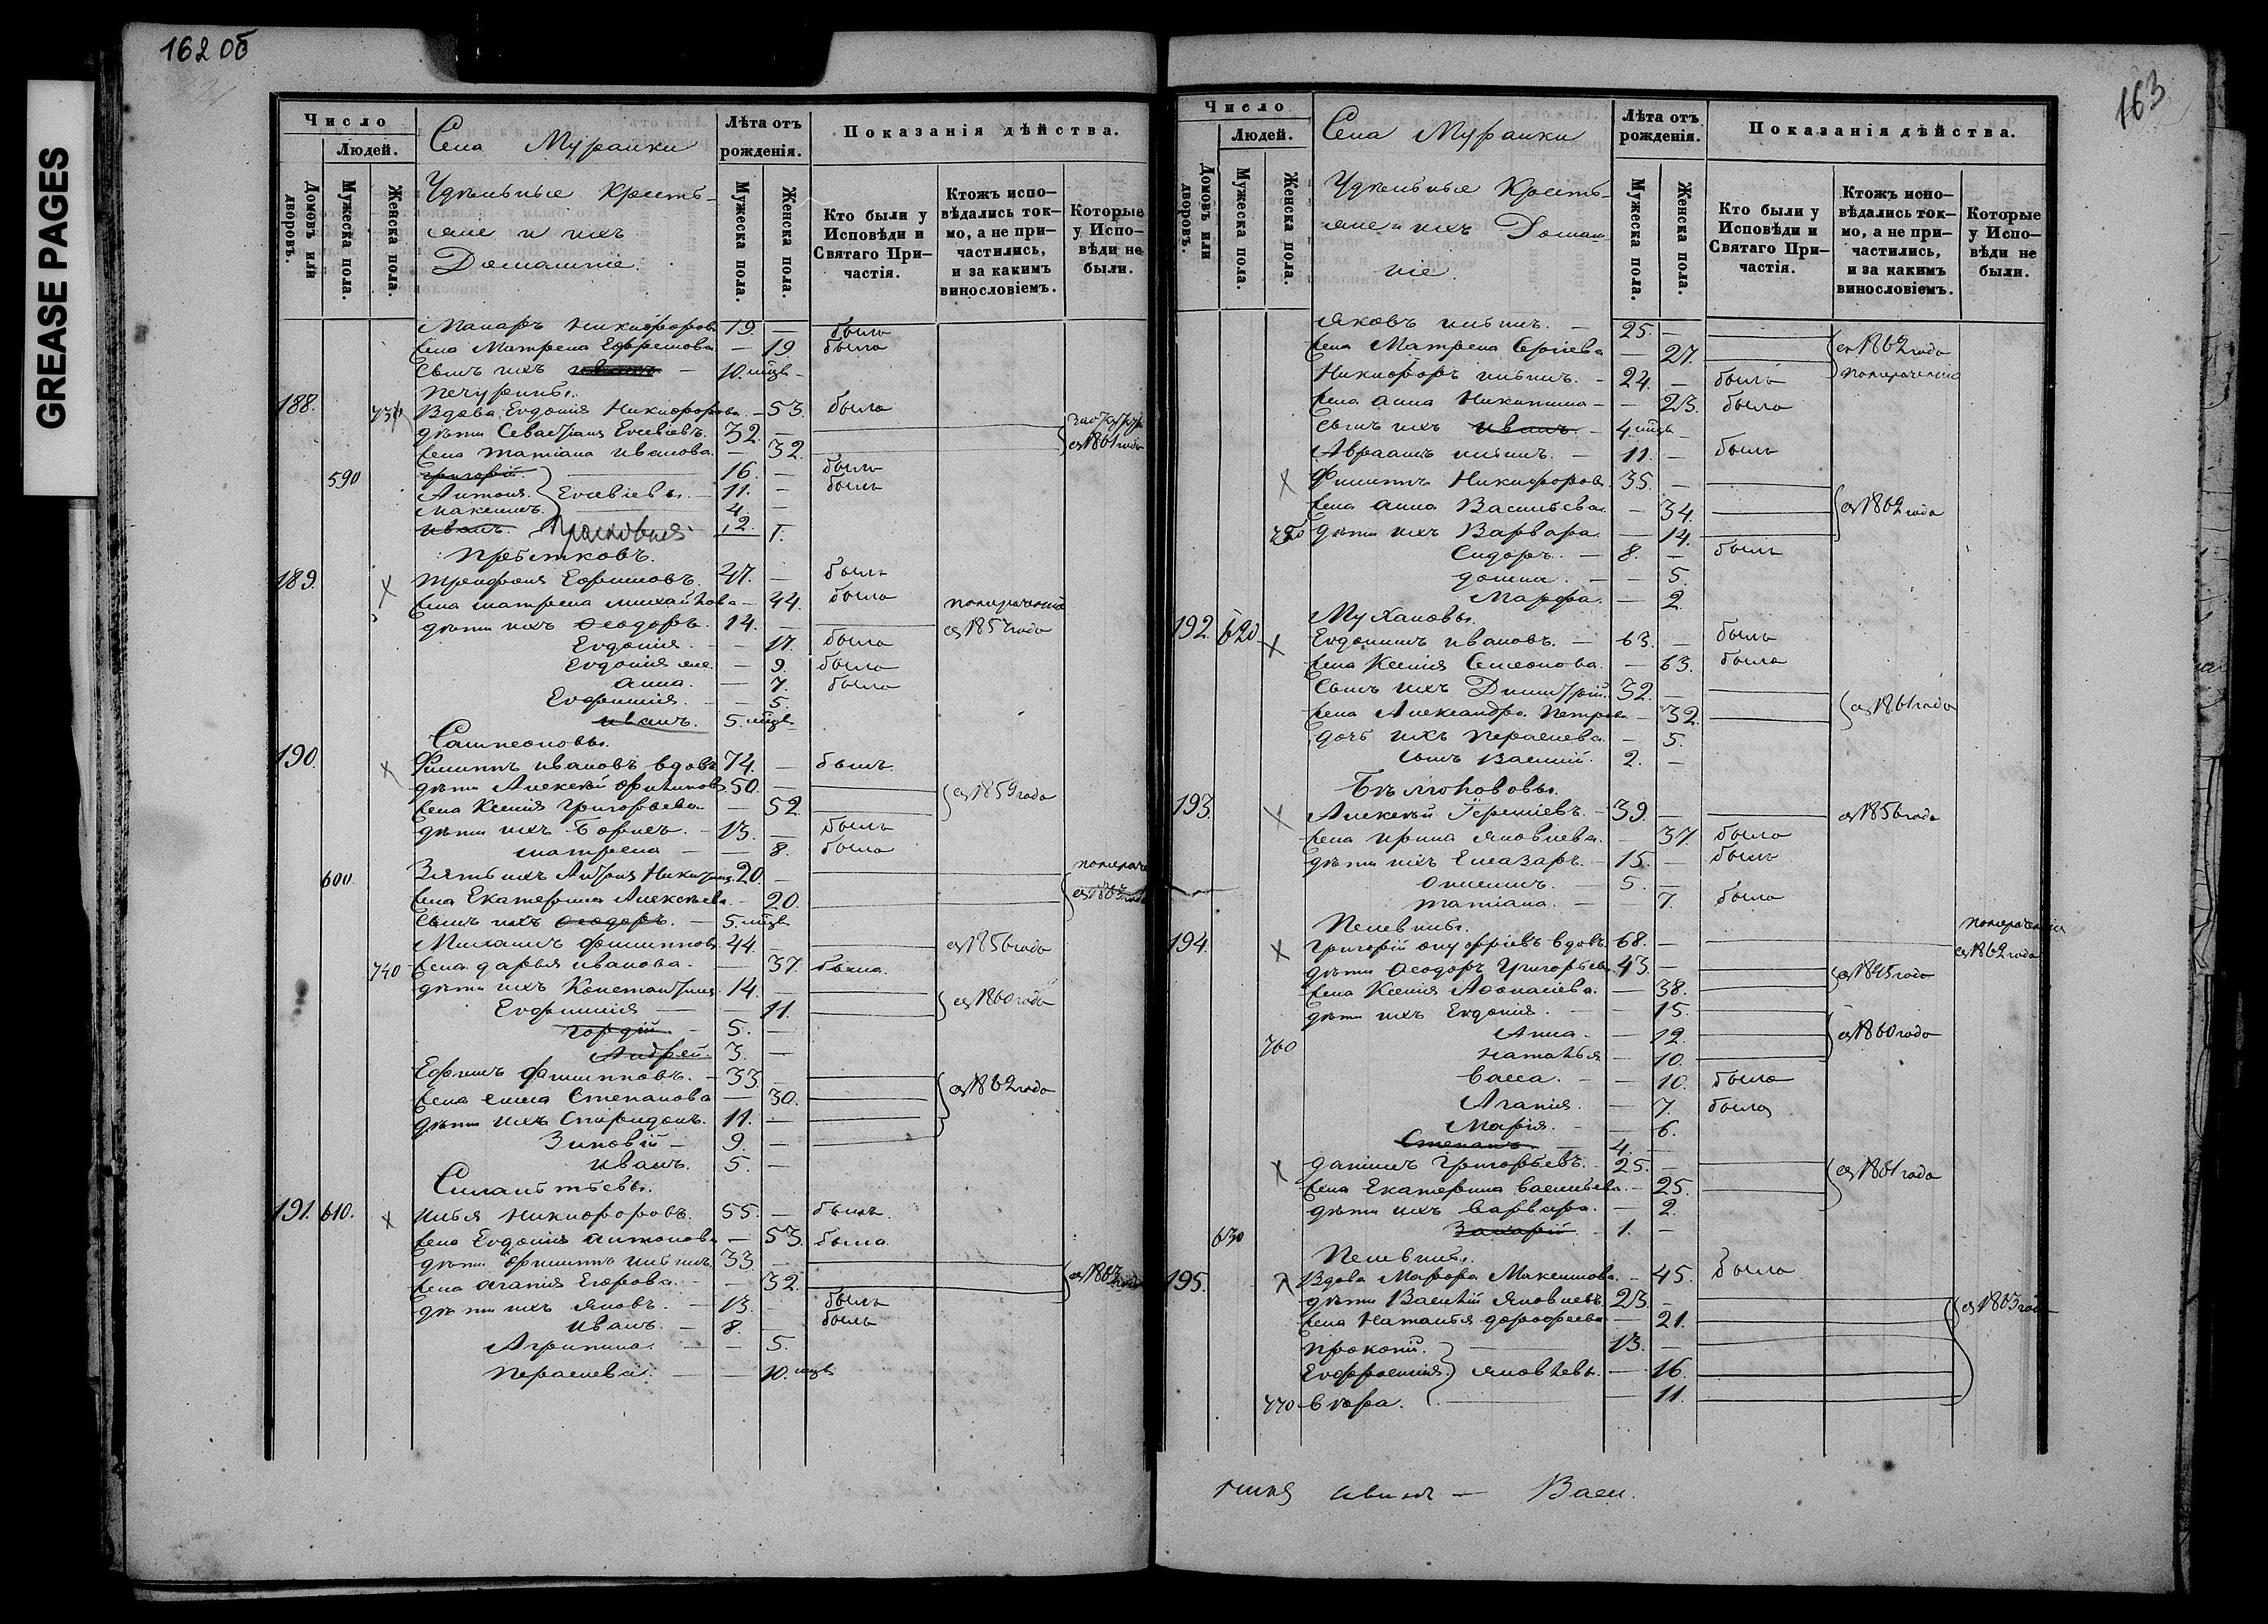 GREASE PAGES
162 об
Число
Людей.
Домовъ или дворовъ.
Мужеска пола.
Женска пола.
Села Муранки
Удѣльные Кресть-
яне и ихъ
Домашніе.
Лѣта отъ рожденія.
Мужеска пола.
Женска пола.
Показанія дѣйства.
Кто были у Исповѣди и Святаго При-частія.
Ктожъ испо-вѣдались ток-мо, а не при-частились, и за какимъ винословіемъ.
Которые у Испо-вѣди не были.
Макаръ Никифоровъ 19. — былъ
жена Матрена Ефремова — 19. была
Сынъ ихъ — 10. мцв
Печурины.
188. Вдова Евдокія Никифорова. — 53. была
дѣти Севастіанъ Евсевіевъ. 32. —
жена Татіана Иванова. — 32. съ 1861 года
590 Григорій 16. — былъ
Антонъ. Евсевіевы. 11. — былъ
Максимъ. 4. —
Иванъ. Прасковья 2. 1.
Прытковъ.
189. Х Трифонъ Ефимовъ. 47. — былъ
жена Матрена Михайлова — 44. была
дѣти ихъ Ѳеодоръ. 14. — съ 1857 года
Евдокія. — 17. была
Евдокія — 9. была
Анна. — 7. была
Евфимія. — 5.
Иванъ. 5. мцв
Сампсоновы.
190. Х Филиппъ Ивановъ вдовъ 74. — былъ.
дѣти Алексѣй Филиповъ 50. —
жена Ксенія Григорьева — 52. съ 1859 года
дѣти ихъ Борисъ. 13. — былъ
Матрена — 8. была
600. Зять ихъ Антонъ 20. —
жена Екатерина Алексѣева. — 20. съ 1863 года
Сынъ ихъ Ѳеодоръ. — 5. мцв
Филипповъ 44. — съ 1856 года
740 жена Дарья Иванова. — 37. была.
дѣти ихъ Константинъ 14. —
Евфимія — 11. съ 1860 года
Гордій — 5. —
Андрей. 3. —
Ефимъ Филипповъ. — 33. —
жена Степанова — 30. съ 1862 года
дѣти ихъ Спиридонъ. 11. —
Зиновій — 9. —
Иванъ. 5. —
Силантьевы.
191. 610. Х Илья Никифоровъ. 55. — былъ.
жена Евдокія Антонова — 53. была.
дѣти Филиппъ Ильинъ 33. —
жена Агапія Егорова. — 32. съ 1863 года
дѣти ихъ Яковъ. — 13. былъ
Иванъ. — 8. былъ
Агрипина. — 5.
Параскева. — 10. мцв
163
Число
Людей.
Домовъ или дворовъ.
Мужеска пола.
Женска пола.
Села Муранки
Удѣльные Кресть-
яне и ихъ Домаш-
ніе.
Лѣта отъ рожденія.
Мужеска пола.
Женска пола.
Показанія дѣйства.
Кто были у Исповѣди и Святаго При-частія.
Ктожъ испо-вѣдались ток-мо, а не при-частились, и за какимъ винословіемъ.
Которые у Испо-вѣди не были.
Яковъ Ильинъ. — 25. —
жена Матрена Сергіева — 27. съ 1862 года
Никифоръ Ильинъ. — 24. — былъ
жена Анна Никитина — 23. была
Сынъ ихъ Иванъ. — 4. мцв —
Авраамъ Ильинъ. — 11. — былъ
Х Филиппъ Никифоровъ 35. —
жена Анна Васильева. — 34. съ 1862 года
750 дѣти ихъ Варвара. — 14.
Сидоръ. — 8. — былъ
Домна. — 5.
Марфа. — 2.
Мухановы.
192. 620. Х Евдокимъ Ивановъ. — 63. — былъ
жена Ксенія Семенова. — 63. была
Сынъ ихъ Димитрій. 32. —
жена Александра Петрова — 32. съ 1861 года
дочь ихъ Параскева. — 5.
сынъ Василій. 2. —
193. Х Алексѣй 39. — съ 1856 года
жена Ирина Яковлева. — 37. была
дѣти ихъ Елеазаръ. — 15. — былъ
Онисимъ. — 5. —
Татіана. — 7. была
Пелевины.
194. Х Григорій Онуфріевъ вдовъ. 68. — съ 1862 года
дѣти Ѳеодоръ Григорьевъ. 43. — съ 1845 года
жена Ксенія Аѳонасіева. — 38.
дѣти ихъ Евдокія. — 15.
Анна. — 12. съ 1860 года
760 Наталья — 10.
Васса. — 10. была
Агапія. — 7. была
Марія. — 6.
Степанъ. — 4. —
Х Даніилъ Григорьевъ. — 25. —
жена Екатерина Васильева. — 25. съ 1861 года
дѣти ихъ Варвара. — 2.
630 Захарій 1. —
Пелевины.
195. Х Вдова Марфа Максимова. — 45. была
дѣти Василій Яковлевъ. 23. — съ 1863 года
жена Наталья Дорофеева — 21.
Прокопій. 13. —
Евфросинія. Яковлевы. — 16.
770 Вѣра. — 11.